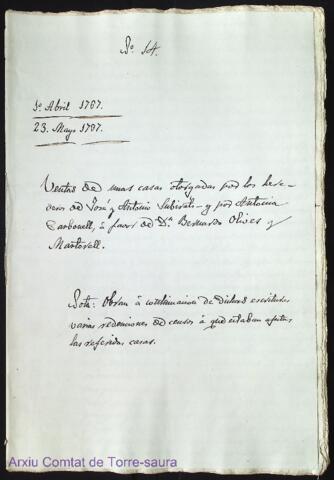 Nº 14.
1º Abril 1787.
23. Mayo 1787.
Ventas de unas casas otorgadas por los here-
deros de José y Antonio Subirats y por Antonia
Carbonell, á favor de Dn. Bernardo Olives y
Martorell.
Nota: Obran á continuacion de dichas escrituras
varias redenciones de censos á que estaban afectas
las referidas casas.
Arxiu Comtat de Torre-saura